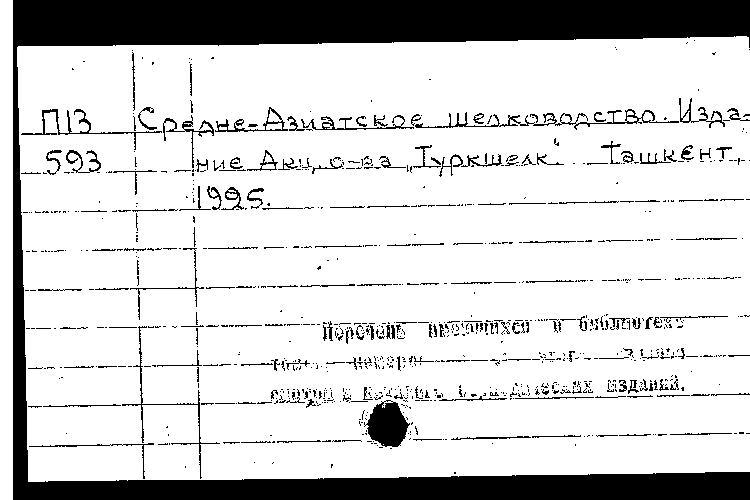 П13 Средне-Азиатское шелководство. Изда-
593 ние Акц. о-ва „Туркшелк“. Ташкент,
1925.
Перечень имеющихся в библиотеке
номеров
смотри в изданий.